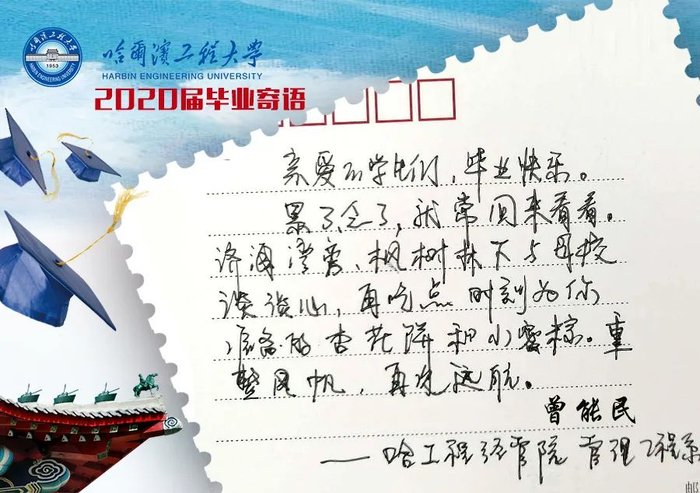 哈尔滨工程大学
HARBIN ENGINEERING UNIVERSITY
1953
2020届毕业寄语
亲爱的学生们，毕业快乐。
累了念了，就常回来看看。
济海澄霁、枫树林下与母校
谈谈心，再吃点时刻为你
准备的杏花饼和小蜜粽。重
整风帆，再次远航。
曾能民
——哈工程经管院 管理工程系
邮